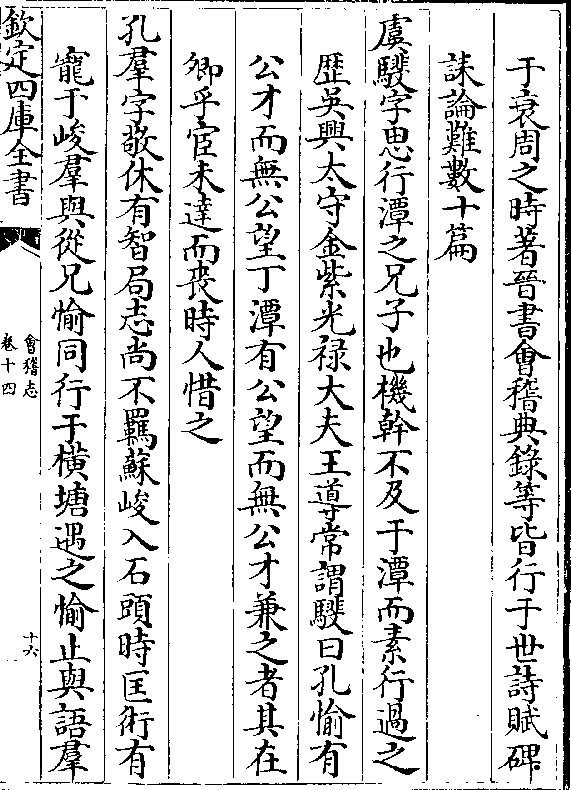 于衰周之時著晉書會稽典錄等皆行于世詩賦碑
誄論難數十篇
虞𩦎字思行潭之兄子也機幹不及于潭而素行過之
歴吳興太守金紫光禄大夫王導常謂𩦎曰孔愉有
公才而無公望丁潭有公望而無公才兼之者其在
卿乎宦未達而喪時人惜之
孔羣字敬休有智局志尚不羈蘇峻入石頭時匡術有
寵于峻羣與從兄愉同行于橫塘遇之愉止與語羣
欽定四庫全書
會稽志
卷十四
十六